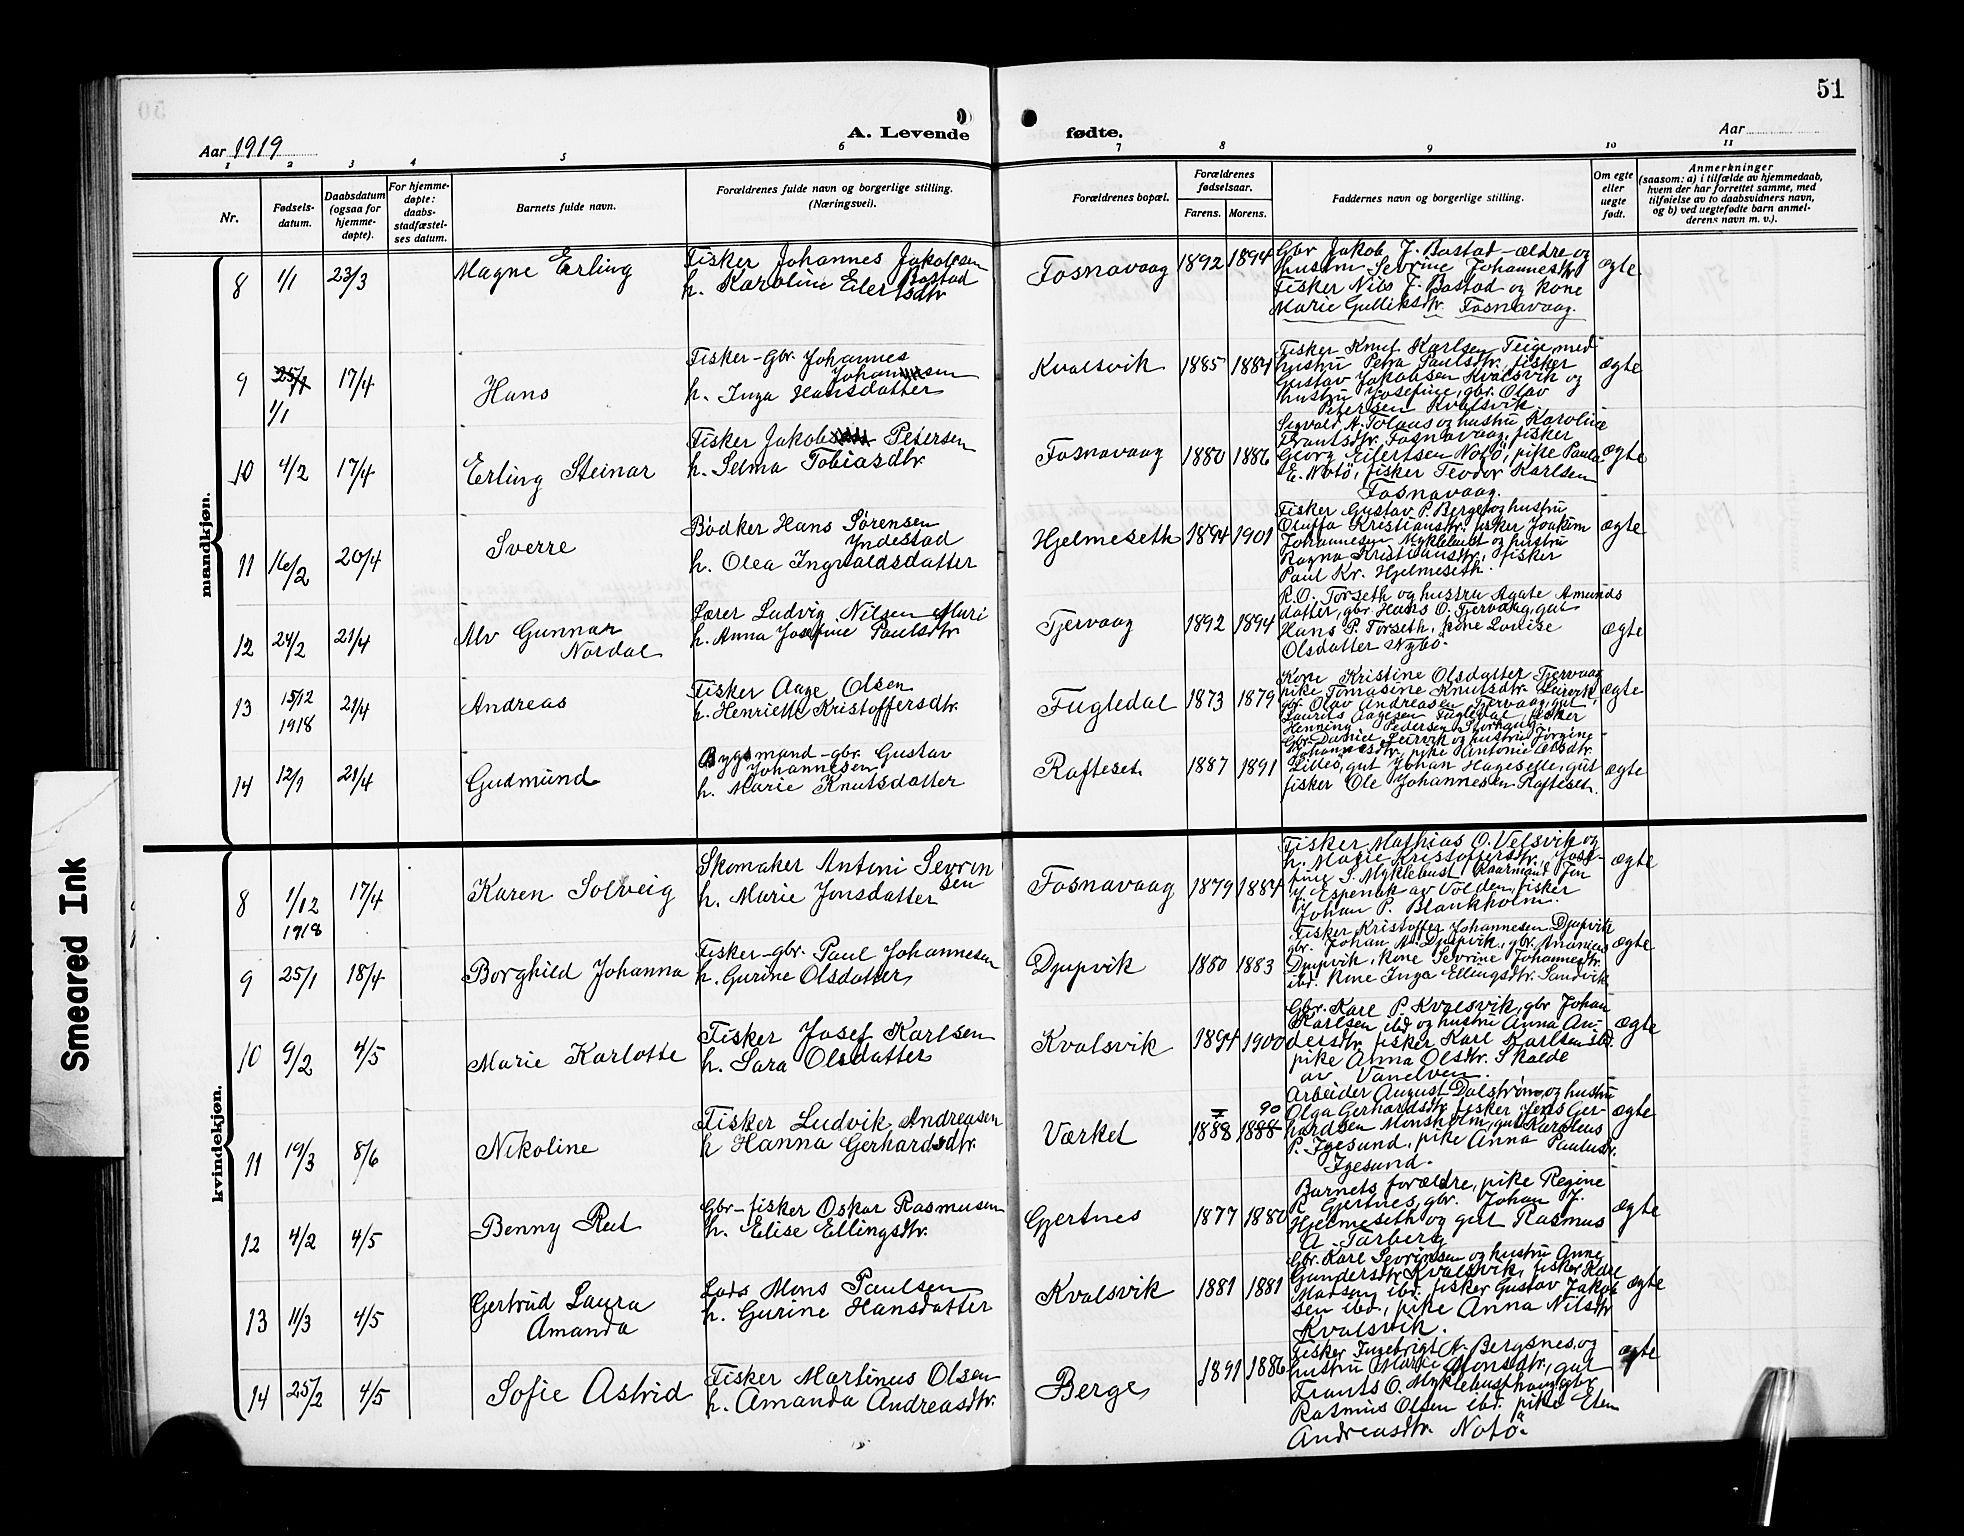 51
A. Levende fødte.
Aar 1919
Aar
1 2 3 4 5 6 7 8 9 10 11
Nr.
Fødsels-datum.
Daabsdatum (ogsaa for hjemme-døpte).
For hjemme-døpte: daabs-stadfæstel-ses datum.
Barnets fulde navn.
Forældrenes fulde navn og borgerlige stilling. (Næringsvei).
Forældrenes bopæl.
Forældrenes fødselsaar.
Farens. Morens.
Faddernes navn og borgerlige stilling.
Om egte eller uegte født.
Anmerkninger
(saasom: a) i tilfælde av hjemmedaab,
hvem der har forrettet samme, med
tilføielse av to daabsvidners navn,
og b) ved uegtefødte barn anmel-
derens navn m. v.).
mandkjøn.
8 1/1 23/3 Magne Erling
Fisker Johannes Jakobsen
Bastad
h. Karoline Eilertsdtr
Fosnavaag 1892 1894
Gbr Jakob J. Bastad ældre og
hustru Sevrine Johannesdtr
Fisker Nils J. Bastad og kone
Marie Gulliksdtr. Fosnavaag.
ægte
9 25/1 1/1 17/4 Hans
Fisker-Gbr. Johannes
Johannesen
h. Inga Hansdatter
Kvalsvik 1885 1884
Fisker Knut Karlsen Teige med
hustru Petra Paulsdtr. fisker
Gustav Jakobsen Kvalsvik og
hustru Josefine, gbr. Olav
Petersen Kvalsvik.
ægte
10 4/2 17/4 Erling Steinar
Fisker Jakob Petersen
h. Selma Tobiasdtr.
Fosnavaag 1880 1886
Sigvald A. Tolaas og hustru Karoline
Frantsdtr. Fosnavaag, fisker
Georg Eilertsen Notö, pike Paula
E. Notö, fisker Teodor Karlsen
Fosnavaag.
ægte
11 16/2 20/4 Sverre
Bødker Hans Sørensen
Yndestad
h. Olea Ingvaldsdatter
Hjelmeseth 1894 1901
Fisker Gustav P. Berge og hustru
Oluffa Kristiansdtr. fisker Joakim
Johannesen Myklebust og hustru
Ragna Kristiansdtr., fisker
Paul Kr. Hjelmeseth.
ægte
12 24/2 21/4 Alv Gunnar
Nordal
Lærer Ludvig Nilsen Muri
h. Anna Josefine Paulsdtr
Tjervaag 1892 1894
R.O. Torseth og hustru Agate Amunds
datter, gbr. Hans O. Tjervaag, gut
Hans P. Torseth, kone Lovise
Olsdatter Nybö.
ægte
13 15/12 1918 21/4 Andreas
Fisker Aage Olsen
h. Henriette Kristoffersdtr.
Fugledal 1873 1879
Kone Kristine Olsdatter Tjervaag
pike Tomasine Knutsdtr. Leirvik,
gbr. Olav Andreasen Tjervaag, gut
Laurits Aagesen Fugledal, fisker
Henning Pedersen
ægte
14 12/1 21/4 Gudmund
Bygsmand-gbr. Gustav
Johannesen
h. Marie Knutsdatter
Rafteset 1887 1891
Gbr. Daniel Leirvik og hustru Jörgine
Johannesdtr, pike Antonie Olsdtr.
Lilleö, gut Johan Hageselle, gut
fisker Ole Johannessen Rafteset.
ægte
kvindekjøn.
8 1/12 1918 17/4 Karen Solveig
Skomaker Antoni Sevrin
sen
h. Marie Jonsdatter
Fosnavaag 1879 1884
Fisker Mathias O. Velsvik og
h. Marie Kristoffersdtr., Jose-
fine S. Myklebust, Kaarmand Fin
J. Espenak av Volden, fisker
Johan P. Blankholm.
ægte
9 25/1 18/4 Borghild Johanna
Fisker-gbr. Paul Johannesen
h. Gurine Olsdatter
Djupvik 1880 1883
Fisker Kristoffer Johannesen Djupvik
gbr. Johan A. Djupvik, gbr. Ananias
Djupvik, kone Sevrine Johannesdtr.
ibd. kone Inga Ellingsdtr. Sandvik
ægte
10 9/2 4/5 Marie Karlotte
Fisker Josef Karlsen
h. Sara Olsdatter
Kvalsvik 1894 1900
Gbr. Karl P. Kvalsvik, gbr Johan
Karlsen ibd og hustru Anna An-
dersdtr, fisker Karl Karlsen ibd.
pike Anna Olsdtr. Skalde
av Vanelven.
ægte
11 19/3 8/6 Nikoline
Fisker Ludvik Andreasen
h Hanna Gerhardsdtr.
Værket 1888 7 1888 90
Arbeider August Dalström og hustru
Olga Gerhardsdtr. fisker Jens Ger-
hardsen Monsholm, gut Karolus
P. Igesund, pike Anna Paulusdtr.
Igesund.
ægte
12 4/2 4/5 Benny Rut
Gbr-fisker Oskar Rasmusen
h. Elise Ellingsdtr.
Gjertnes 1877 1880
Barnets forældre, pike Regine
R Gjertnes, gbr. Johan J.
Hjelmeseth og gut Rasmus
A. Tarberg
ægte
13 11/3 4/5 Gertrud Laura
Amanda
Lods Mons Paulsen
h. Gurine Hansdatter
Kvalsvik 1881 1881
Gbr. Karl Sevrinsen og hustru Anne
Gundersdtr Kvalsvik, fisker Karl
Madsen ibd. fisker Gustav Jakob
sen ibd., pike Anna Nilsdtr
Kvalsvik.
ægte
14 25/2 4/5 Sofie Astrid
Fisker Martinus Olsen
h. Amanda Andreasdtr.
Berge 1891 1886
Fisker Ingebrigt A. Bergsnes, og
hustru Marie Monsdtr., gut
Frants O. Myklebusthaug, gbr.
Rasmus Olsen ibd. pike Elen
Andreasdtr. Notö.
ægte
Smeared Ink